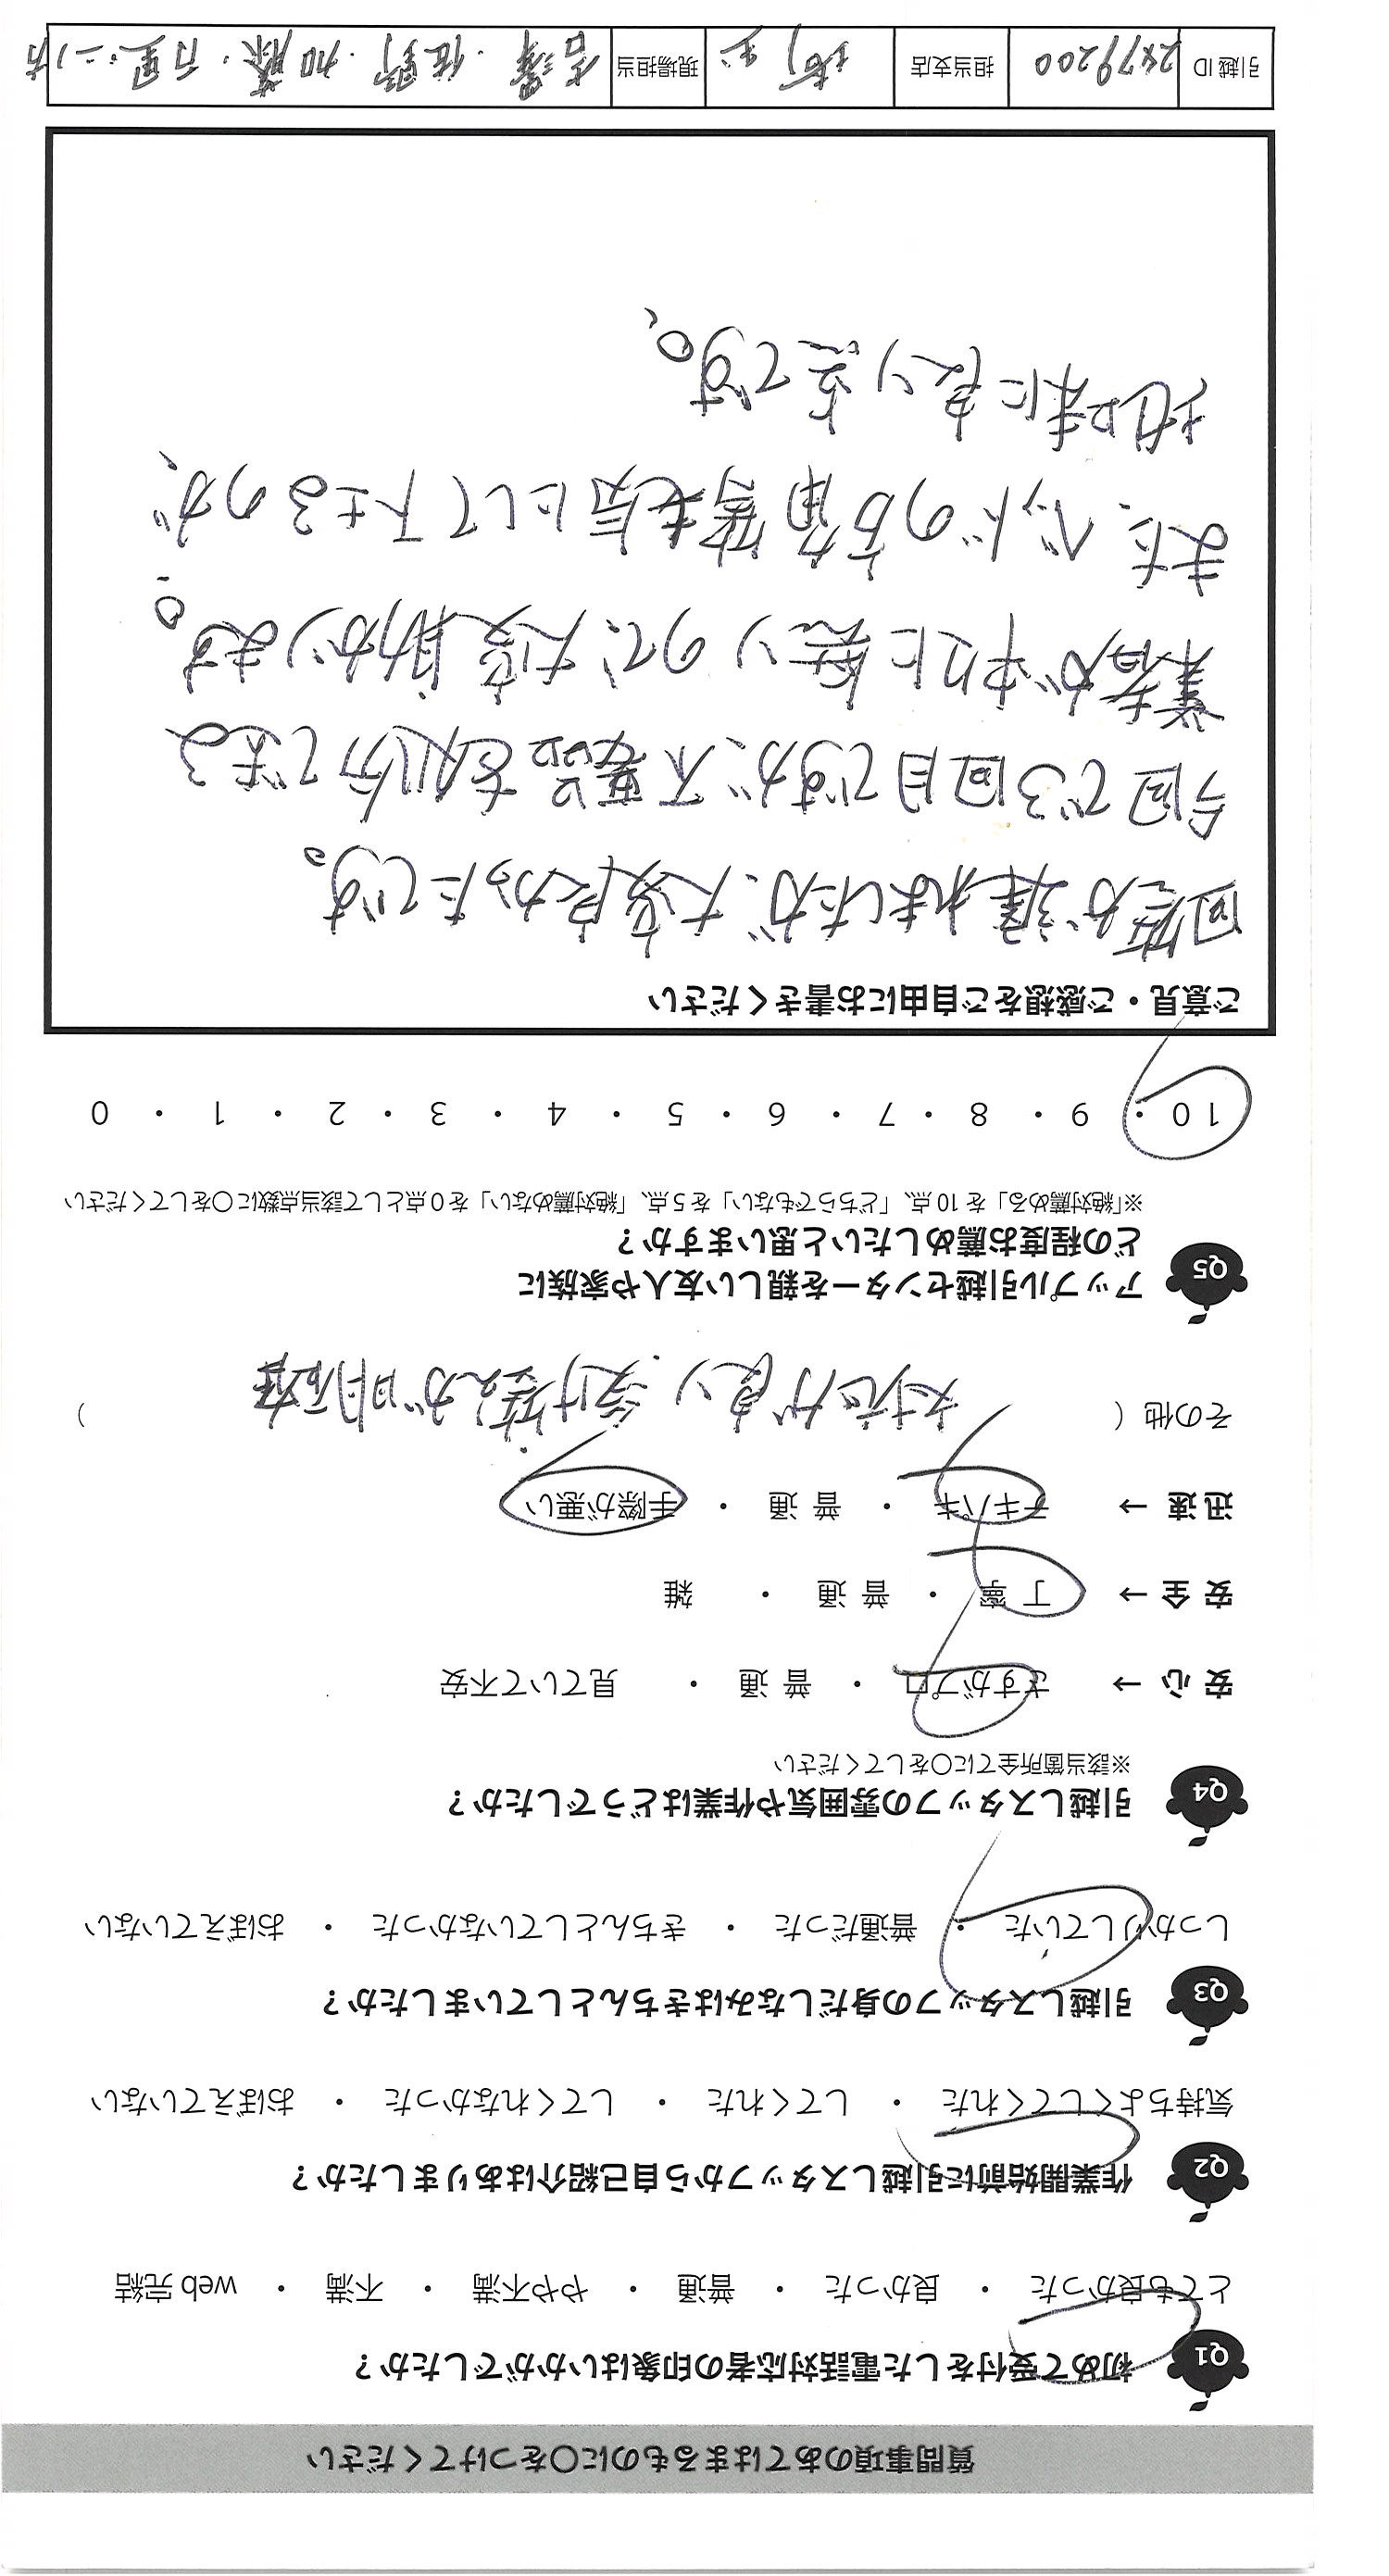 質問事項のあてはまるものに○をつけてください
Q1 初めて受付をした電話対応者の印象はいかがでしたか？
とても良かった ・ 良かった ・ 普通 ・ やや不満 ・ 不満 ・ web 完結
Q2 作業開始前に引越しスタッフから自己紹介はありましたか？
気持ちよくしてくれた ・ してくれた ・ してくれなかった ・ おぼえていない
Q3 引越しスタッフの身だしなみはきちんとしていましたか？
しっかりしていた ・ 普通だった ・ きちんとしていなかった ・ おぼえていない
Q4 引越しスタッフの雰囲気や作業はどうでしたか？
※該当箇所全てに○をしてください
安 心 → さすがプロ ・ 普 通 ・ 見ていて不安
安 全 → 丁 寧 ・ 普 通 ・ 雑
迅 速 → テキパキ ・ 普 通 ・ 手際が悪い
その他 ( 対応が良い、受け答えが明確 )
Q5 アップル引越センターを親しい友人や家族に
どの程度お薦めしたいと思いますか？
※「絶対薦める」を 10 点、「どちらでもない」を 5 点、「絶対薦めない」を 0 点として該当点数に○をしてください
10 ・ 9 ・ 8 ・ 7 ・ 6 ・ 5 ・ 4 ・ 3 ・ 2 ・ 1 ・ 0
ご意見・ご感想をご自由にお書きください
回答が遅れましたが、大変良かったです。
今回で3回目ですが、不要品を処分できる
業者が中々に無いので、大変助かります。
また、ベッドの分解等も気にして下さるのが、
地味に良い点です。
引越 ID 2479200 担当支店 埼玉 現場担当 佐野・加藤